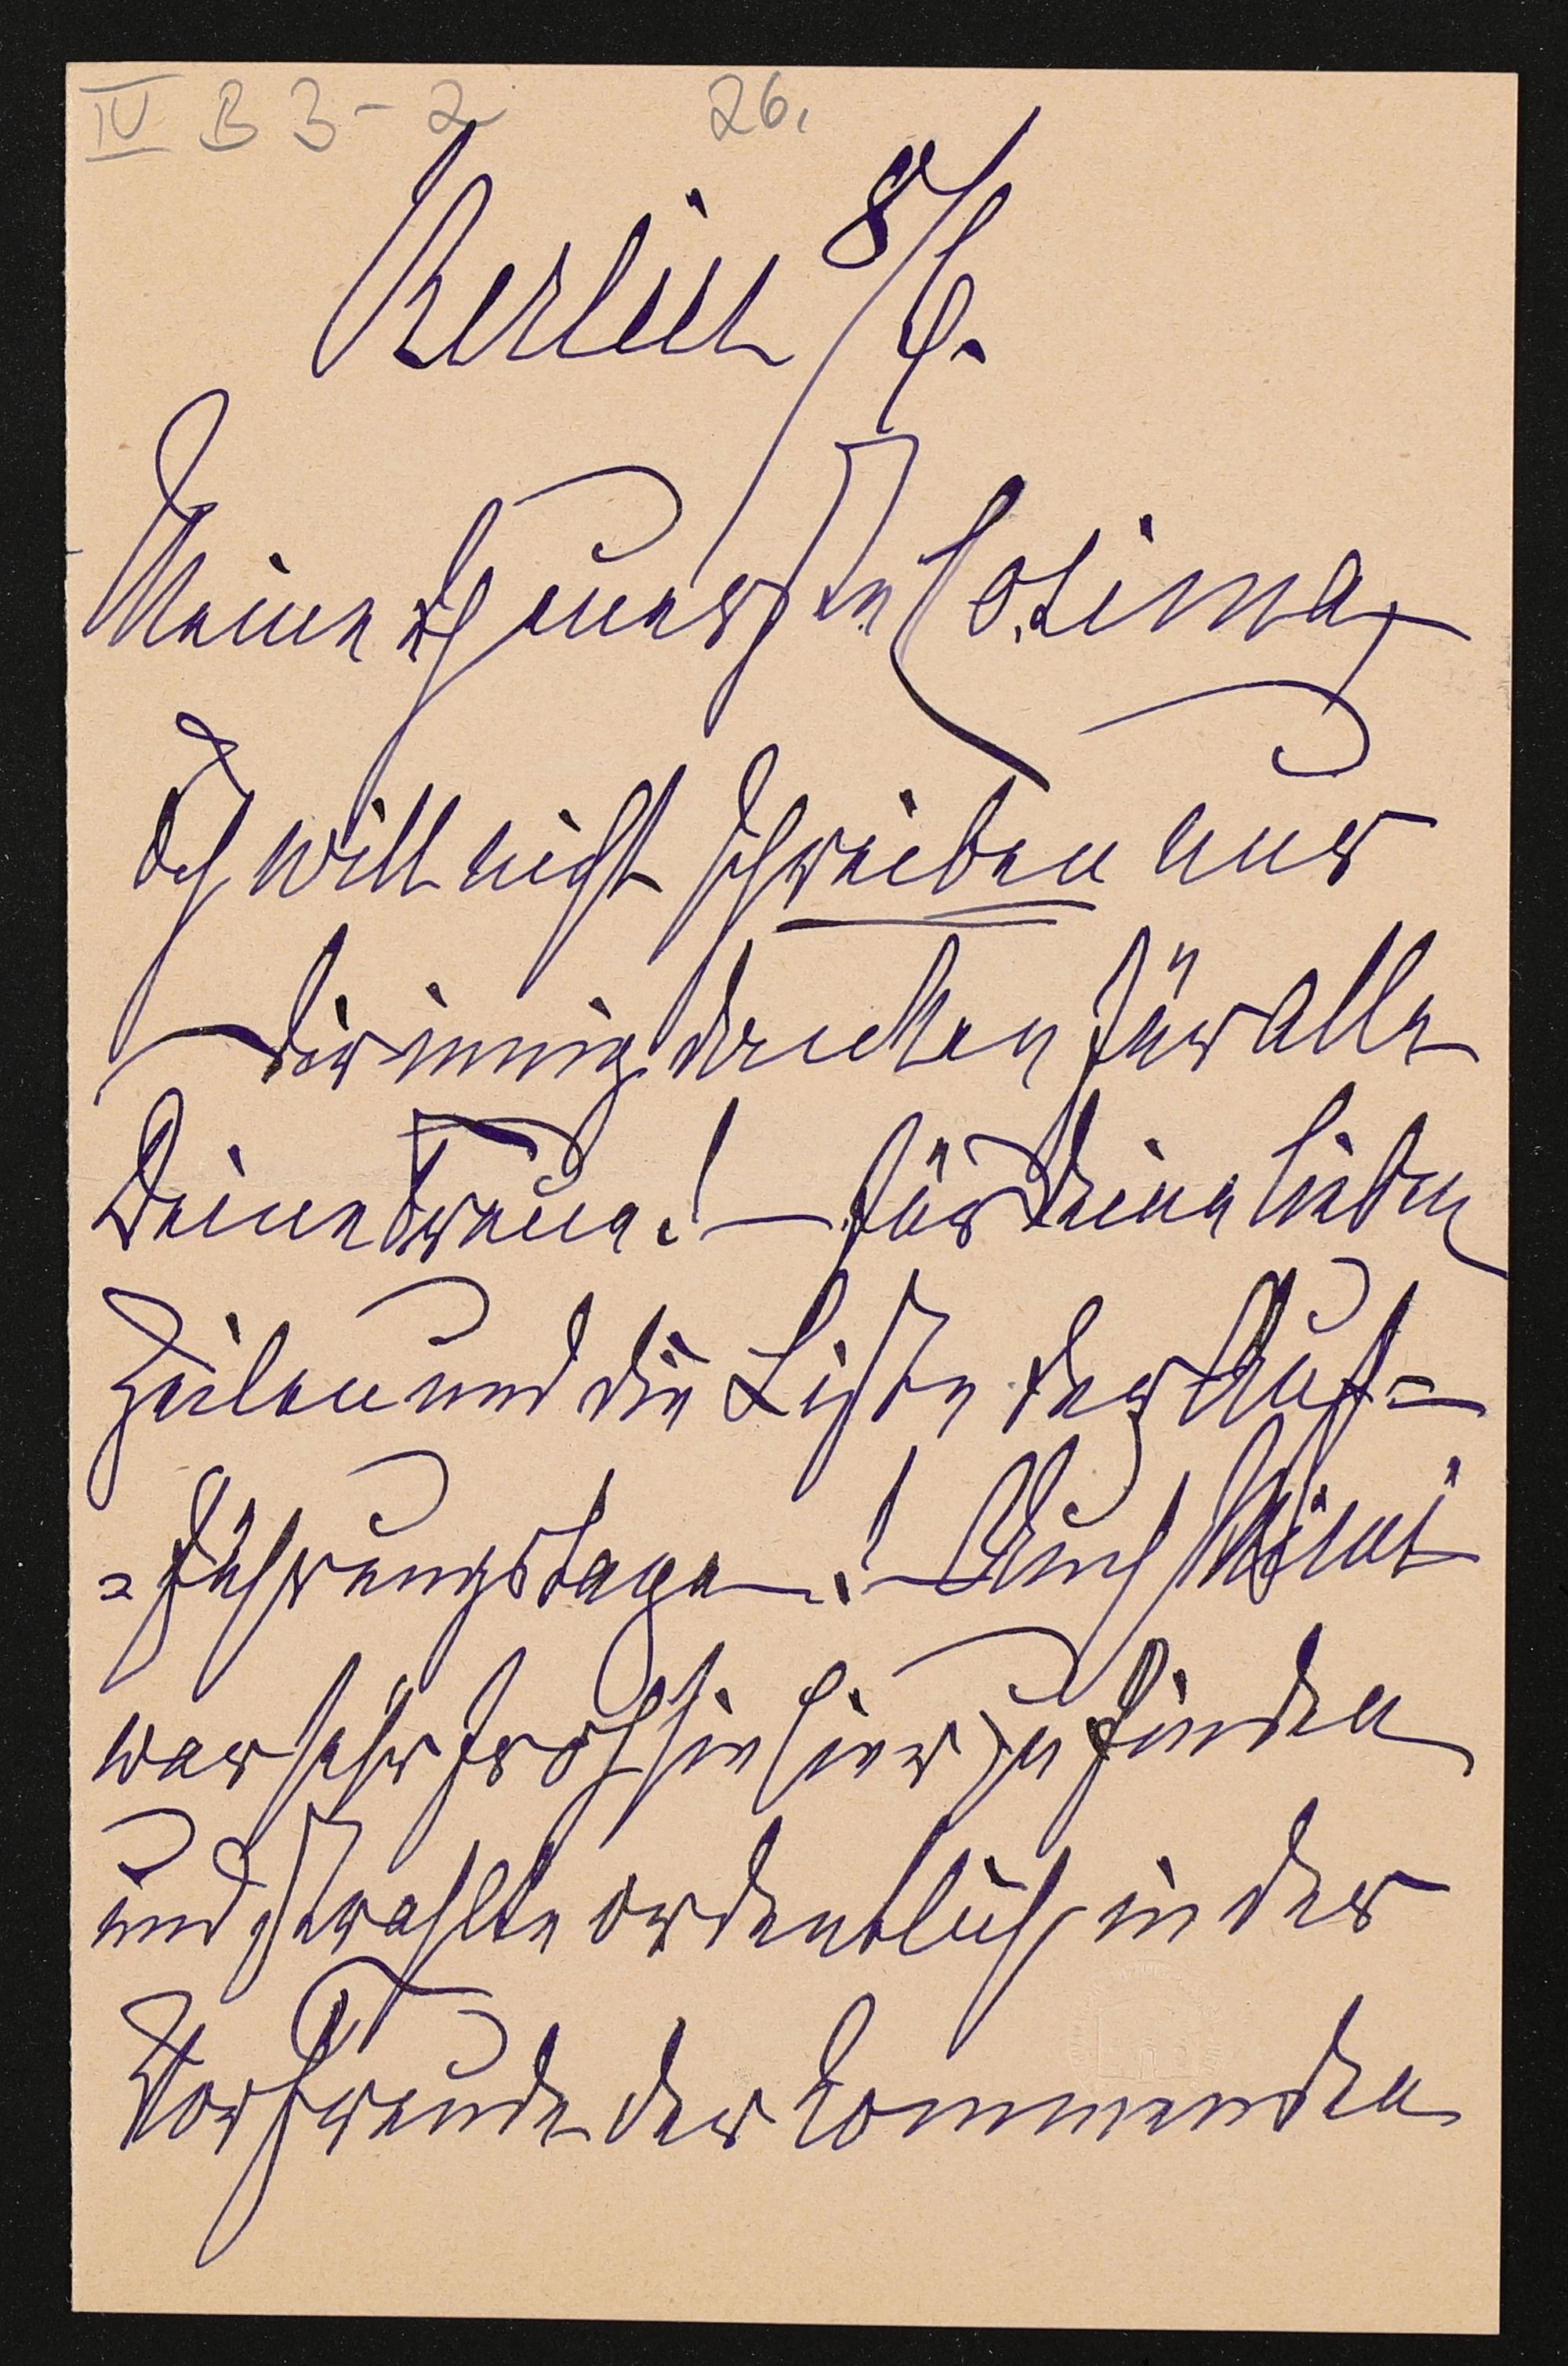 IV B 3-2 26.
Berlin 8/6.
Meine theuerste Cosima,
Ich will nicht schreiben nur
Dir innig danken für alle
Deine Treue! — für Deine lieben
Zeilen und die Liste der Auf=
=führungstage! — Auch Mimi
war sehr froh sie hier zu finden
und strahlte ordentlich in der
Vorfreude der kommenden